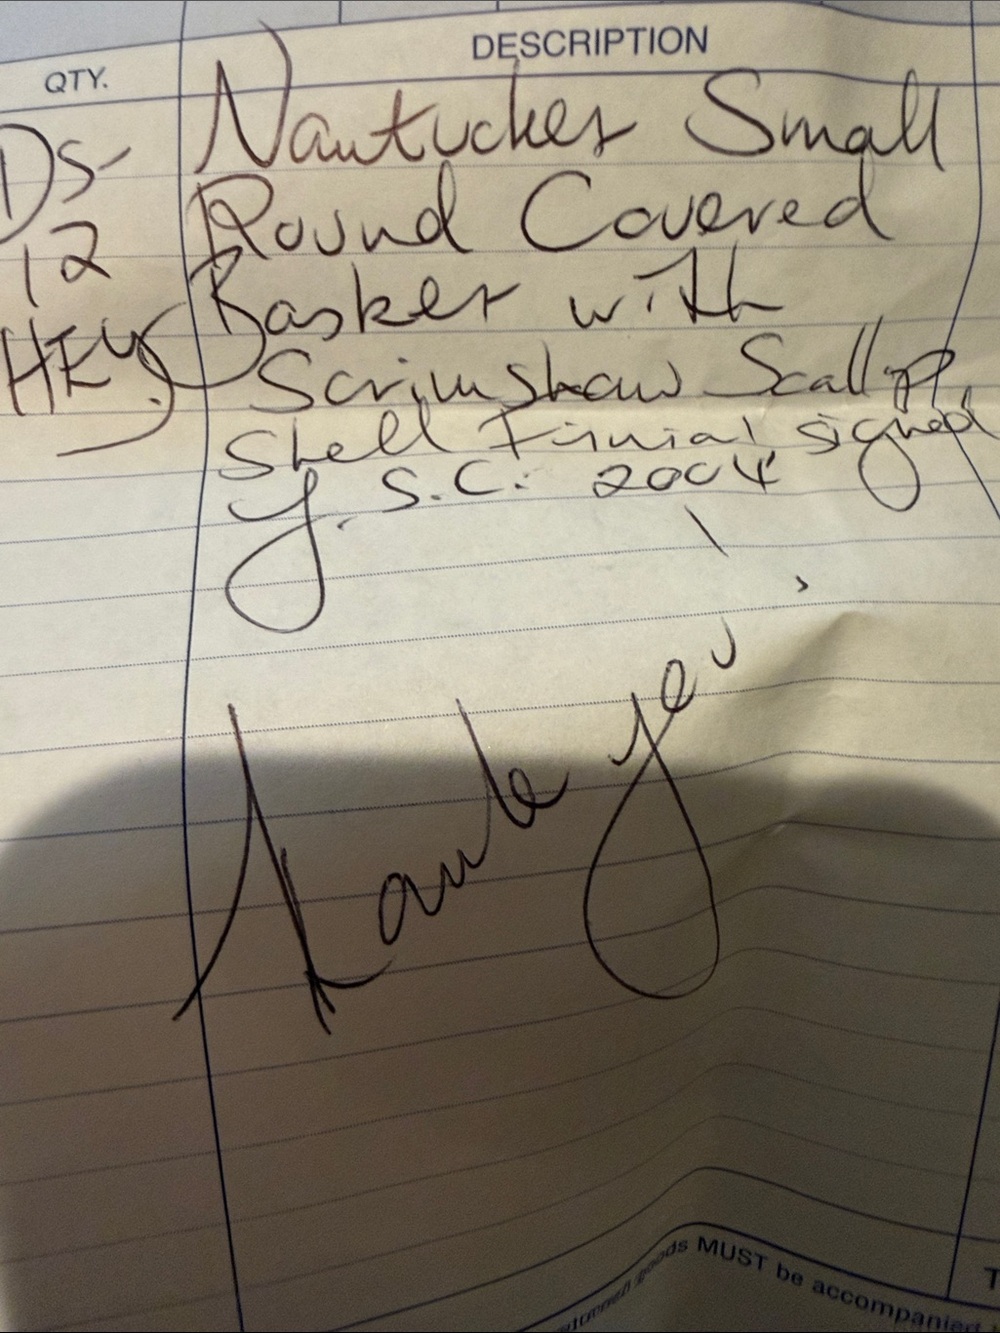 QTY. DESCRIPTION
DS- Nantucket Small
12 Round Covered
Basket with
Scrimshaw Scallop
Shell Finial signed
J.S.C. 2004
Thank you!
goods MUST be accompanied